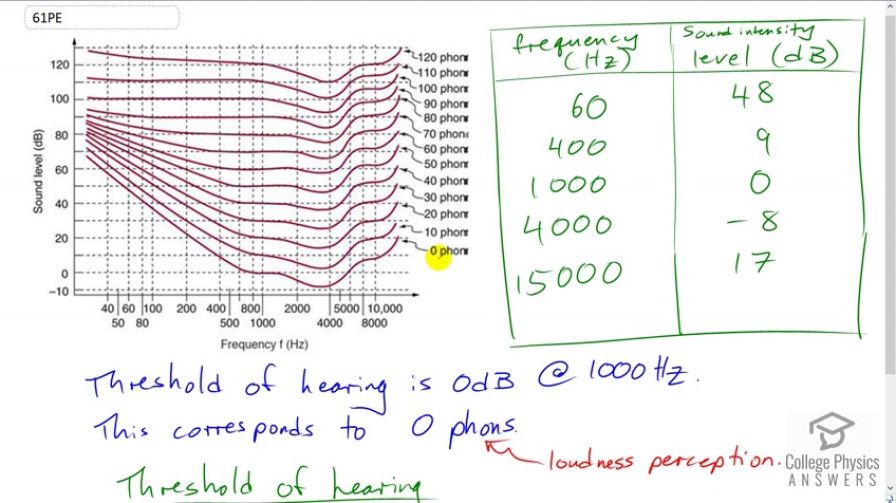 61PE
120
100
80
60
40
20
0
−10
Sound level (dB)
120 phon
110 phon
100 phon
90 phon
80 phon
70 phon
60 phon
50 phon
40 phon
30 phon
20 phon
10 phon
0 phon
40 60 100 200 400 800 2000 5000 10,000
50 80 500 1000 4000 8000
Frequency f (Hz)
frequency (Hz) Sound intensity level (dB)
60 48
400 9
1000 0
4000 -8
15000 17
Threshold of hearing is 0dB @ 1000 Hz.
This corresponds to 0 phons.
loudness perception.
Threshold of hearing
College Physics
ANSWERS